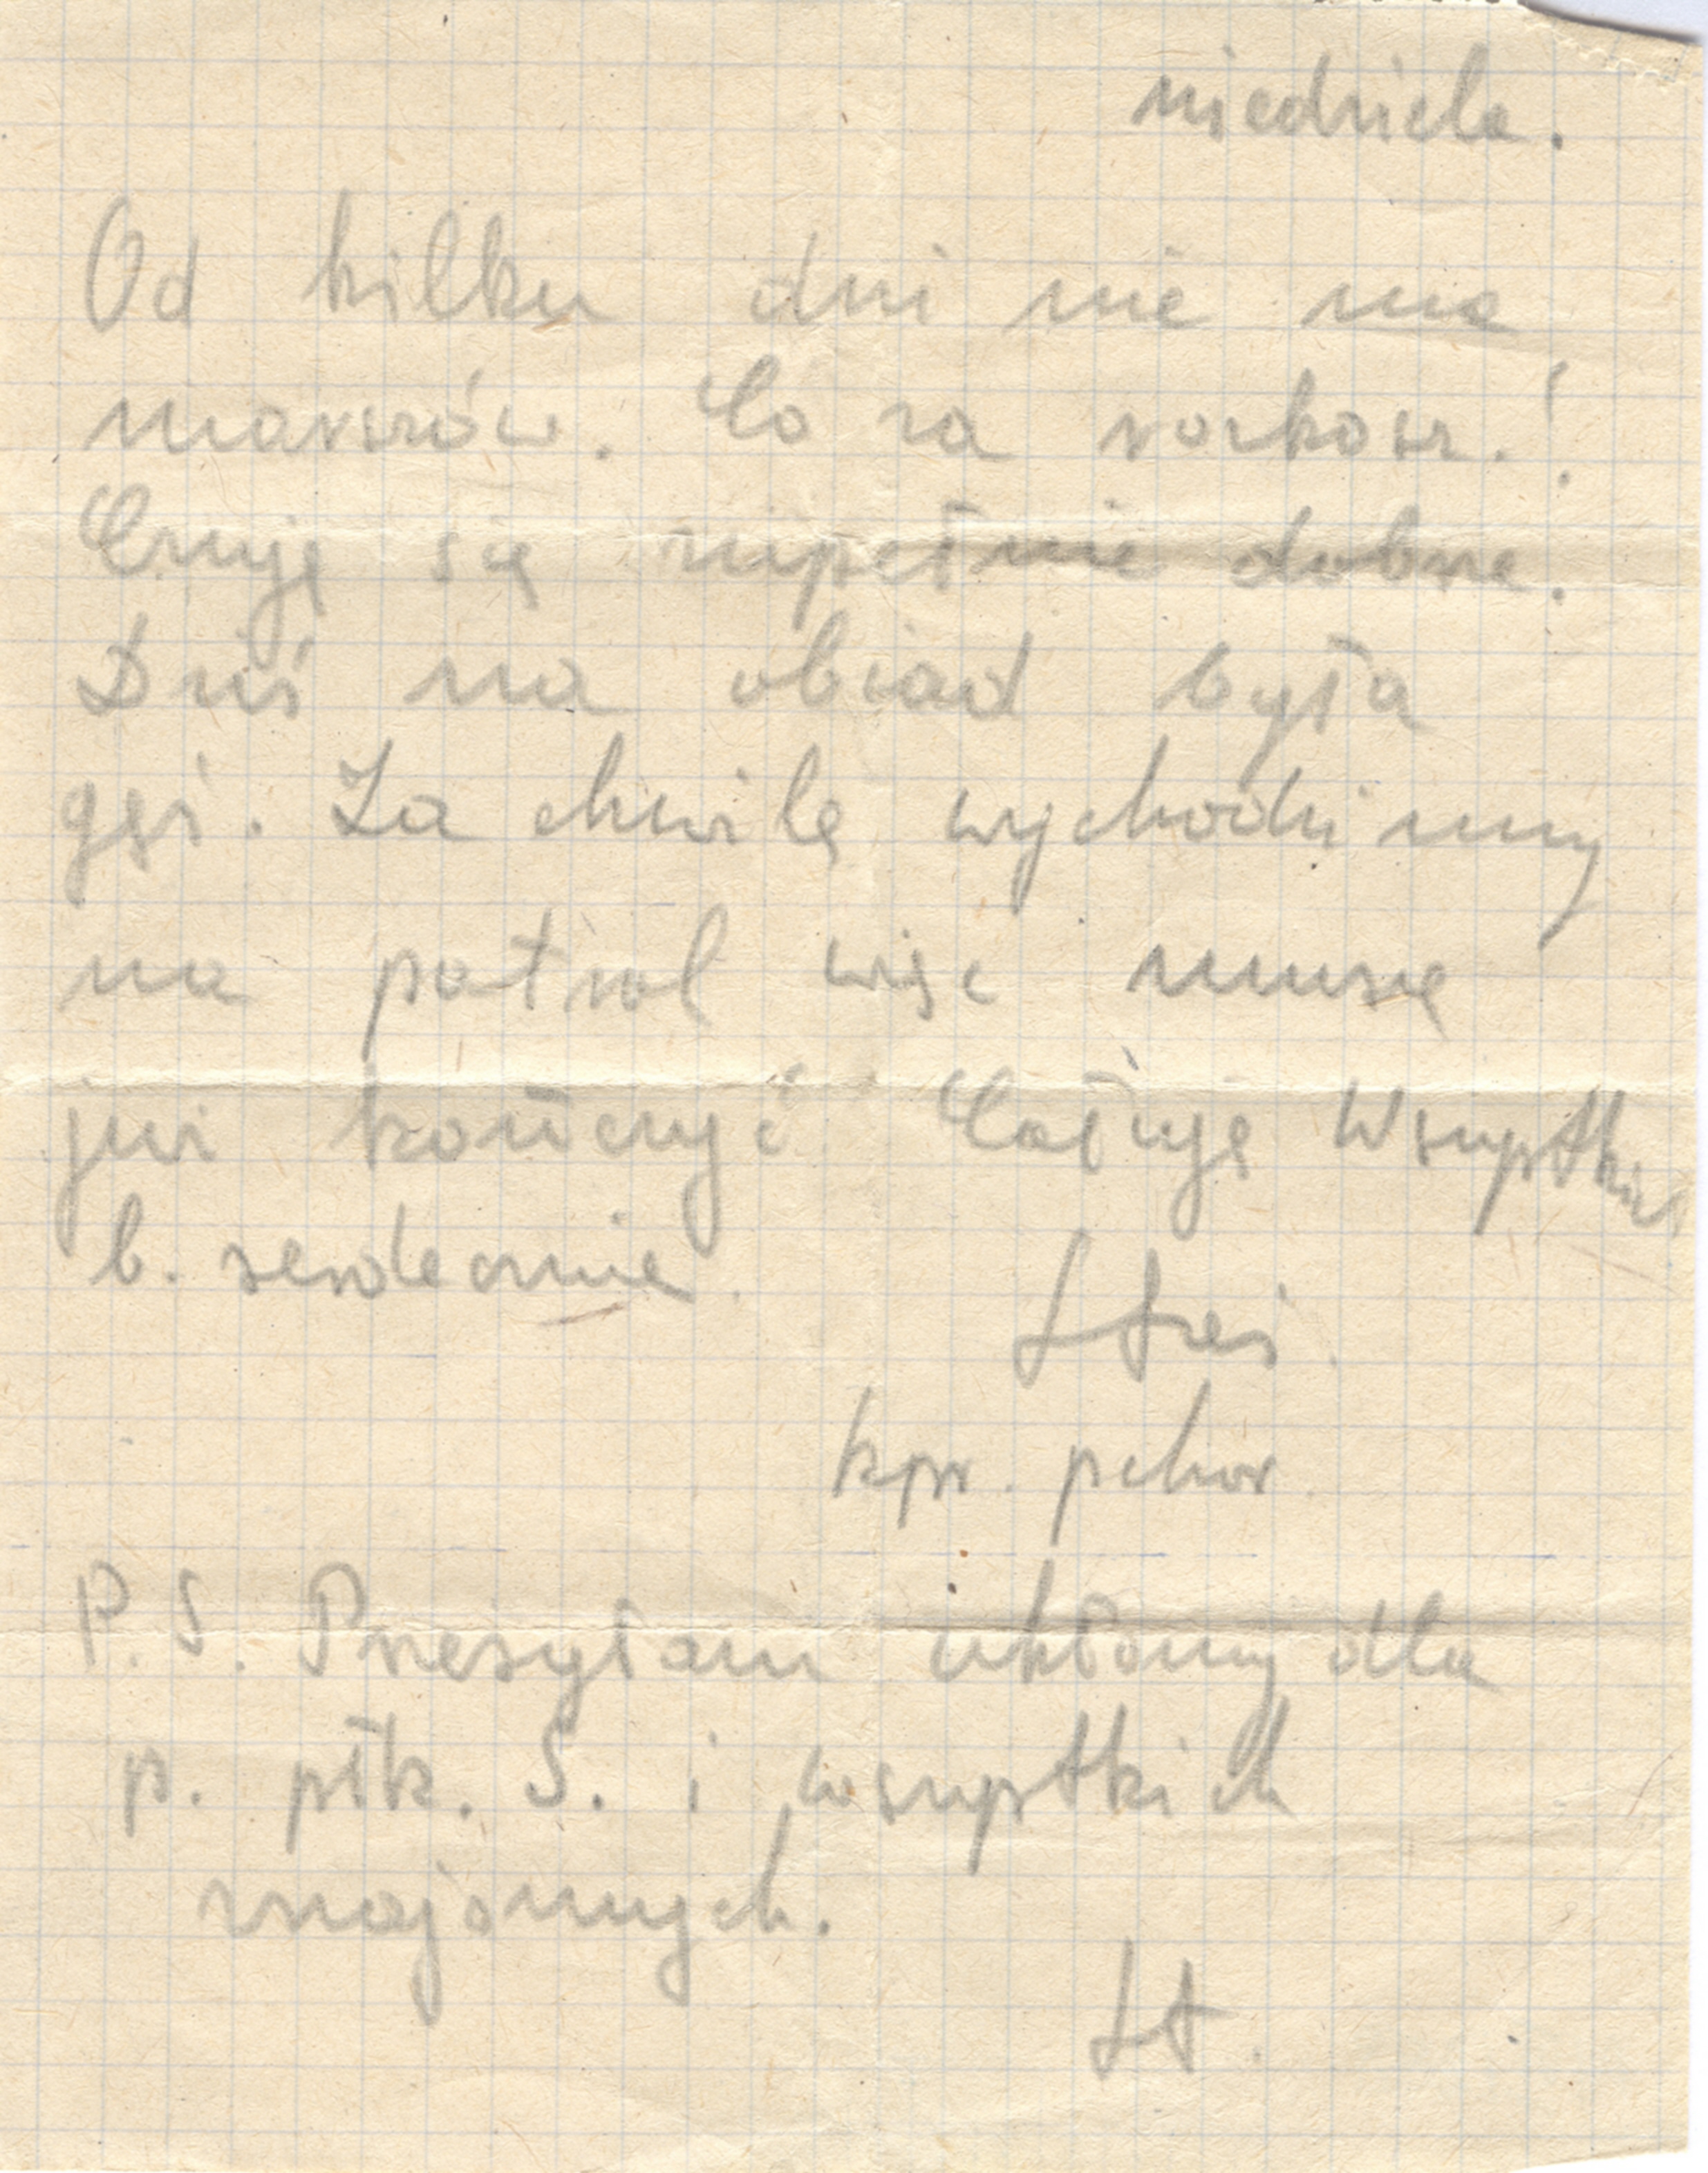 niedziela.
Od kilku dni nie ma
marszów. Co za rozkosz.!
Czuję się zupełnie dobrze.
Dziś na obiad była
gęś. Za chwilę wychodzimy
na patrol więc muszę
już kończyć Całuję Wszystkich
b. serdecznie.
Staś.
kpr. pchor.
P.S. Przesyłam ukłony dla
p. płk. S. i wszystkich
znajomych.
St.